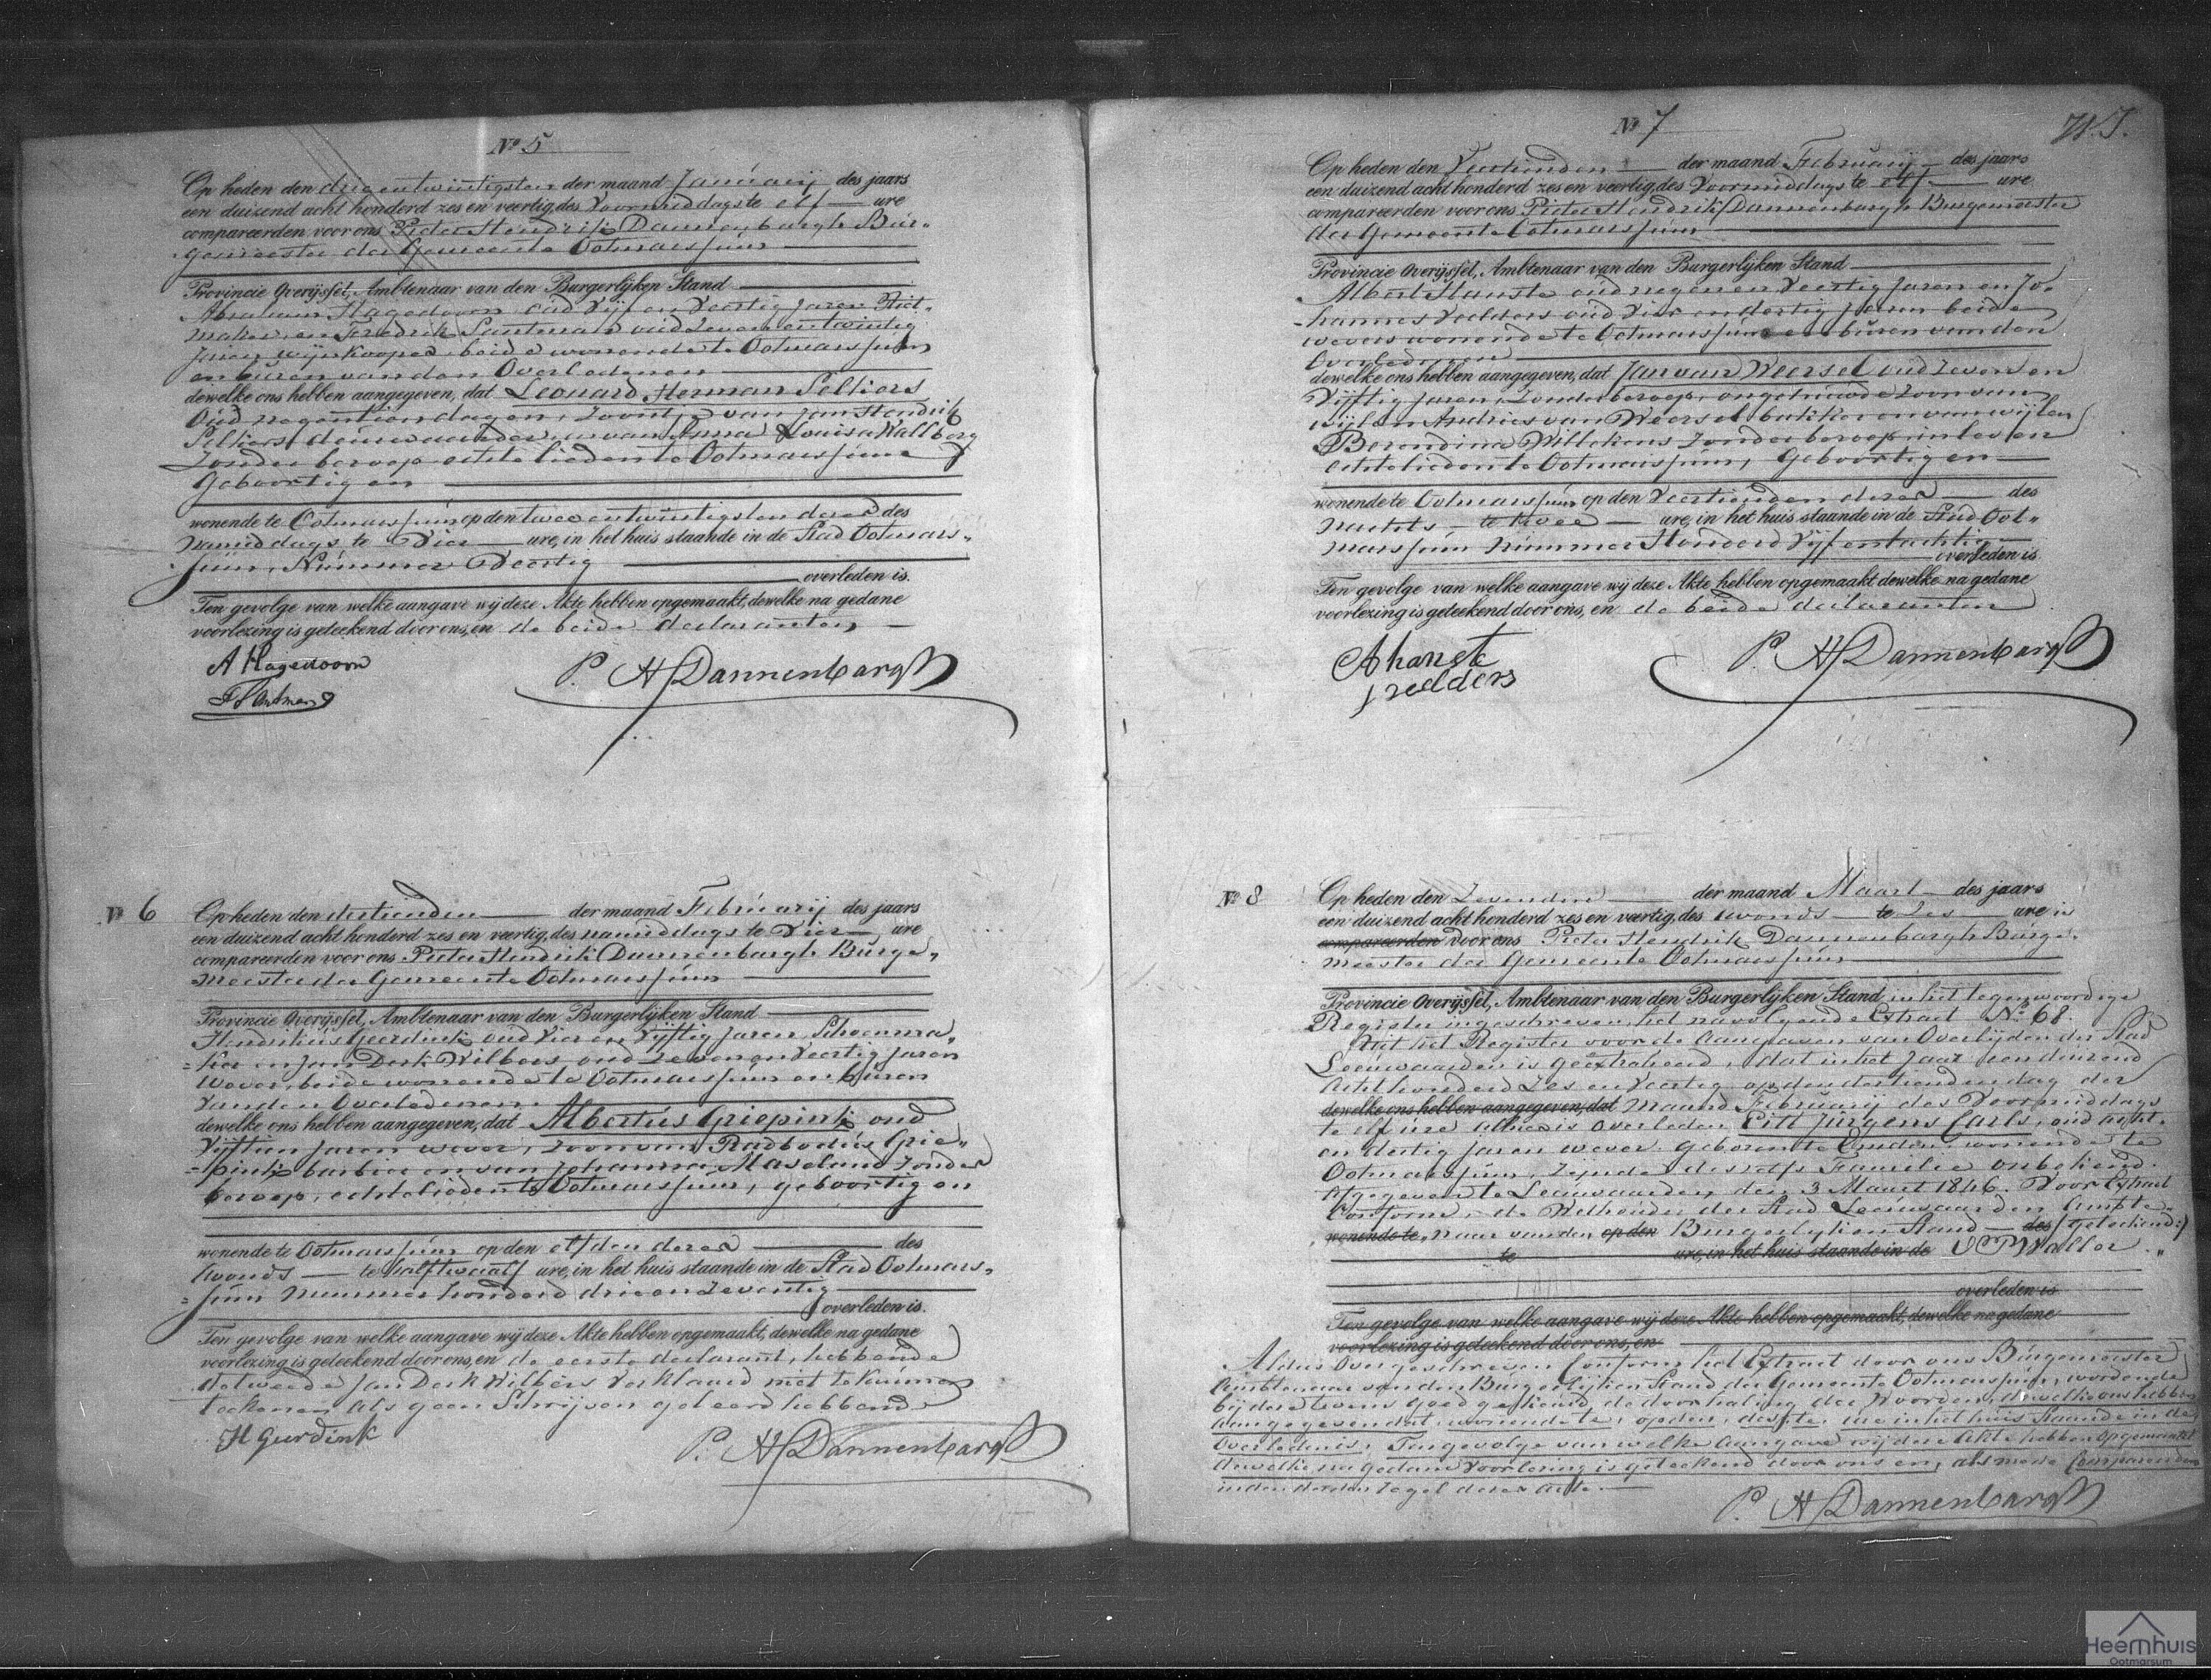 Nº 5
Op heden den drie entwintigsten der maand Januarij des jaars
een duizend acht honderd zes en veertig, des Voormiddags te elf ure
compareerden voor ons Pieter Hendrik Dannenbargh Bur„
gemeester der Gemeente Ootmarssum
Provincie Overijssel, Ambtenaar van den Burgerlijken Stand
Abraham Hagedoorn oud Vijf en Veertig Jaren
maker, en Fredrik Santman oud Zeven entwintig
Jaren wijnkooper beide wonende te Ootmarssum
en buren van den Overledenen
dewelke ons hebben aangegeven, dat Leonard Herman Peltiers
Oud negentien dagen, Zoontje van Jan Hendrik
Peltiers, en van Anna Louisa Wallberg
Zonder beroep echtelieden te Ootmarssum
Geboortig en
wonende te Ootmarssum op den twee entwintigsten dezer des
namiddags te Vier ure, in het huis staande in de Stad Ootmars„
sum, Nummer Veertig
overleden is.
Ten gevolge van welke aangave wij deze Akte hebben opgemaakt, dewelke na gedane
voorlezing is geteekend door ons, en de beide declaranten
A Hagedoorn
P. H Dannenbargh
F Santman
Nº 6
Op heden den dertienden der maand Februarij des jaars
een duizend acht honderd zes en veertig, des namiddags te Vier ure
compareerden voor ons Pieter Hendrik Dannenbargh Burge„
meester der Gemeente Ootmarssum
Provincie Overijssel, Ambtenaar van den Burgerlijken Stand
Hendrikus Geerdink oud Vier en Vijftig Jaren Schoenma„
ker en Jan Derk Wilbers oud Zeven en Veertig Jaren
Wever, beide wonende te Ootmarssum en buren
van den Overledenen
dewelke ons hebben aangegeven, dat Albertus Griepink oud
Vijftien Jaren wever, Zoon van Radbodus Grie„
pink barbier en van Johanna Maseland Zonder
beroep, echtelieden te Ootmarssum, geboortig en
wonende te Ootmarssum op den elfden dezer des
Avonds te halftwaalf ure, in het huis staande in de Stad Ootmars„
sum Nummer honderd drie en Zeventig
overleden is.
Ten gevolge van welke aangave wij deze Akte hebben opgemaakt, dewelke na gedane
voorlezing is geteekend door ons, en de eerste declarant, hebbende
de tweede Jan Derk Wilbers Verklaard niet te kunnen
teekenen als geen Schrijven geleerd hebbende
H Geerdink
P. H Dannenbargh
Nº 7
Op heden den Veertienden der maand Februarij des jaars
een duizend acht honderd zes en veertig, des Voormiddags te elf ure
compareerden voor ons Pieter Hendrik Dannenbargh Burgemeester
der Gemeente Ootmarssum
Provincie Overijssel, Ambtenaar van den Burgerlijken Stand
Albert Hanste oud negen en Veertig Jaren en Jo„
hannes Vedders oud Vier en dertig Jaren beide
wevers wonende te Ootmarssum en buren van den
Overledenen
dewelke ons hebben aangegeven, dat Jan van Weersel oud Zeven en
Vijftig Jaren, Zonder beroep, ongetrouwde Zoon van
wijlen Andries van Weersel bakker en van wijlen
Berendina Willekens Zonder beroep in leven
echtelieden te Ootmarssum, Geboortig en
wonende te Ootmarssum op den Veertienden dezer des
Nachts te twee ure, in het huis staande in de Stad Oot„
marssum Nummer Honderd Vijf entachtig
overleden is.
Ten gevolge van welke aangave wij deze Akte hebben opgemaakt, dewelke na gedane
voorlezing is geteekend door ons, en de beide declaranten
A hanste
P. H Dannenbargh
J vedders
Nº 8
Op heden den Zevenden der maand Maart des jaars
een duizend acht honderd zes en veertig, des avonds te Zes ure is
compareerden voor ons Pieter Hendrik Dannenbargh Burge„
meester der Gemeente Ootmarssum
Provincie Overijssel, Ambtenaar van den Burgerlijken Stand in het tegenwoordige
Register ingeschreven het navolgende Extract Nº 68.
Uit het Register voor de Aangaven van Overlijden der Stad
Leeuwaarden is geëxtraheerd, dat in het Jaar een duizend
acht honderd Zes en Veertig op den dertienden dag der
dewelke ons hebben aangegeven, dat Maand Februarij des Voormiddags
te elf ure alhier is overleden Eilt Jürgens Carls, oud acht
en dertig Jaren wever geboren te Emden wonende te
Ootmarssum, Zijnde deszelfs Familie onbekend.
Afgegeven te Leeuwaarden den 3 Maart 1846. Voor Extract
Conform, de Wethouder der Stad Leeuwaarden Ambte„
wonende te naar van den op den Burgerlijken Stand des (geteekend:)
te ure, in het huis staande in de Waller
overleden is.
Ten gevolge van welke aangave wij deze Akte hebben opgemaakt, dewelke na gedane
voorlezing is geteekend door ons, en
Aldus Overgeschreven Conform het Extract door ons Burgemeester
Ambtenaar van den Burgerlijken Stand der Gemeente Ootmarssum, wordende
bij dezen tevens goedgekeurd de doorhaling der Woorden, dewelke ons hebben
aangegeven dat, wonende te, op den, des, te, ure in het huis Staande in de
Overleden is, Ten gevolge van welke Aangave wij deze Akte hebben opgemaakt
dewelke na gedane Voorlezing is geteekend door ons en, als mede Compareerden
in den derden regel dezer acte.
P. H Dannenbargh
Heemhuis
Ootmarsum